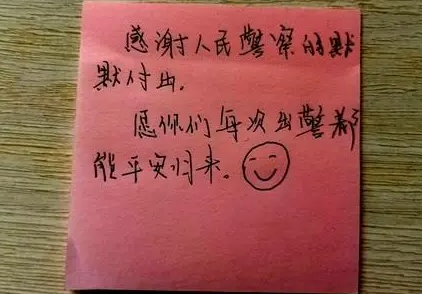 感谢人民警察的默
默付出.
愿你们每次出警都
能平安归来。